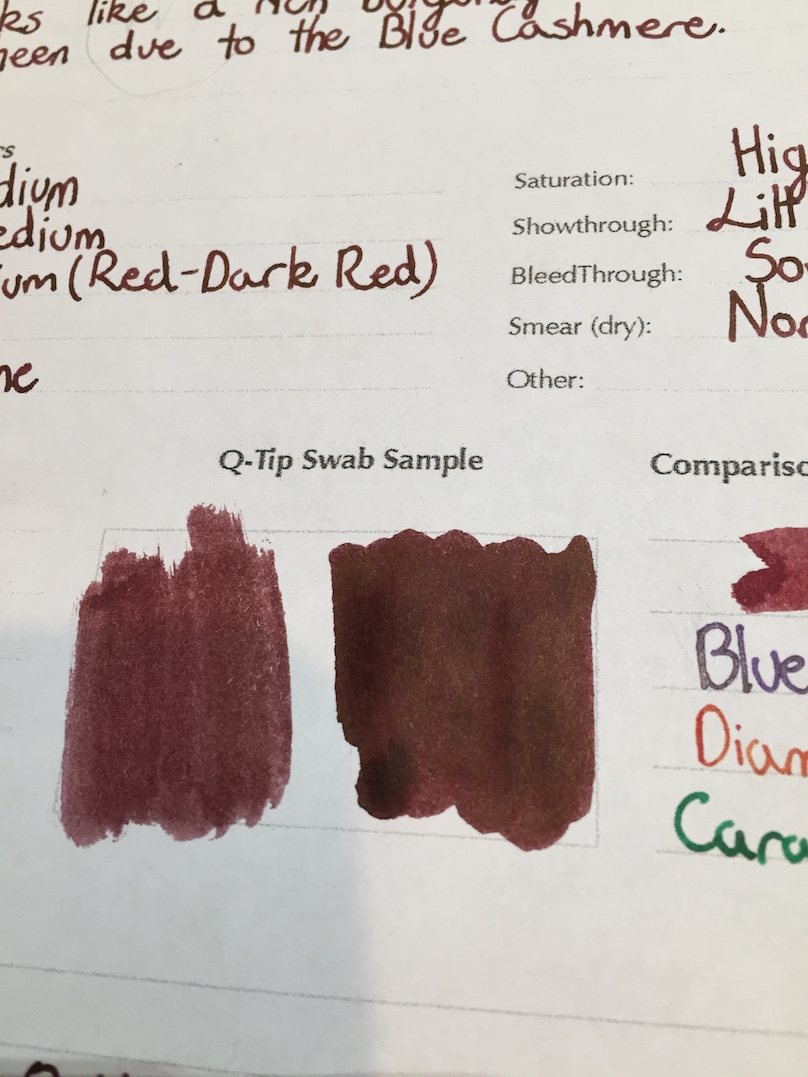 ks like a rich burgundy
heen due to the Blue Cashmere.
rs
dium
edium
ium (Red-Dark Red)
ne
Saturation: Hig
Showthrough: Litt
BleedThrough: So
Smear (dry): Non
Other:
Q-Tip Swab Sample
Compariso
Blue
Diam
Cara